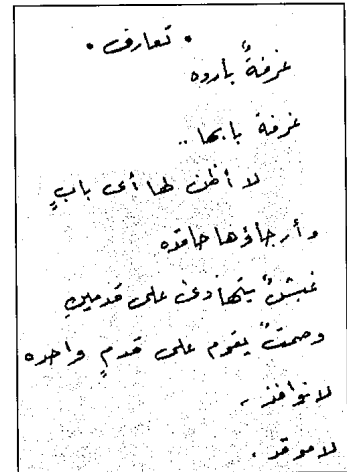 • تعارف •
غرفةٌ باروه
غرفة بابها ..
لا أظن لها أى بابٍ
وأرجاؤها حاقده
غبشٌ يتهادى على قدمينِ
وصمتٌ يقوم على قدمٍ واحده
لا نوافذ ..
لا موقد .